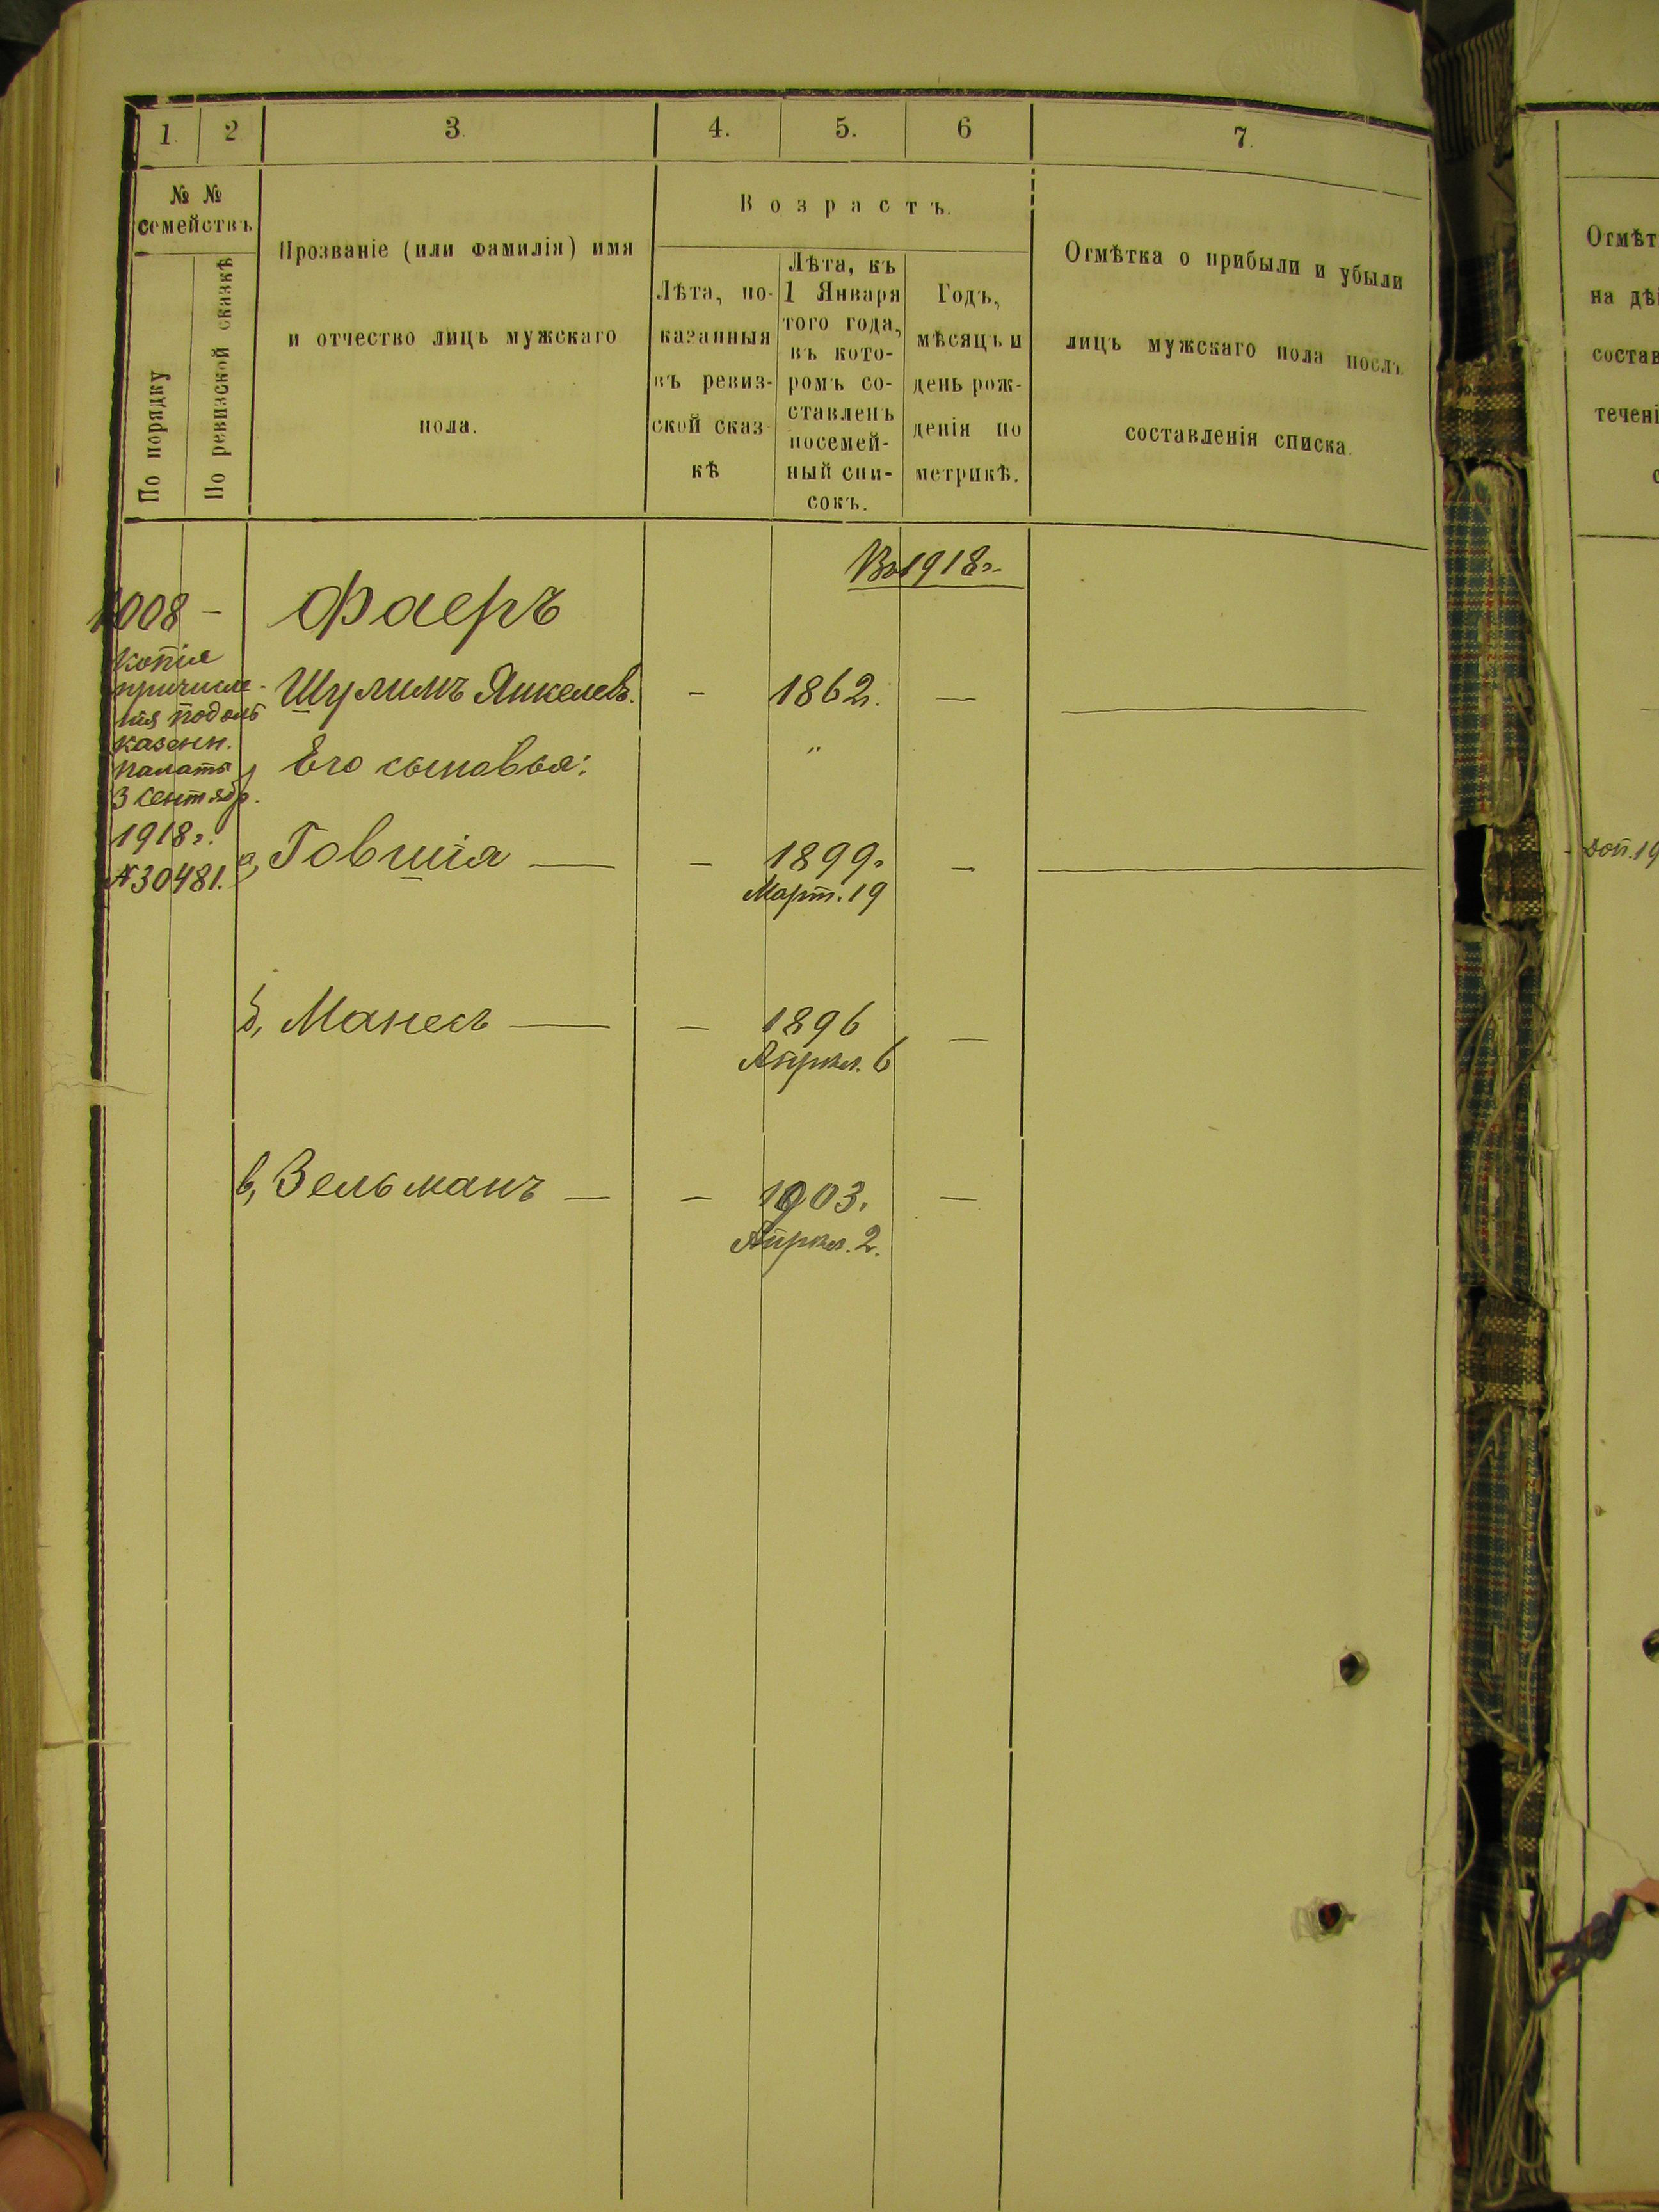 1. 2 3. 4. 5. 6 7.
№ № семействъ
По порядку
По ревизской сказкѣ
Прозваніе (или фамилія) имя
и отчество лицъ мужскаго
пола.
Возрастъ.
Лѣта, по-
казанныя
въ ревиз-
ской сказ
кѣ
Лѣта, къ
1 Января
того года,
въ кото-
ромъ со-
ставленъ
посемей-
ный спи-
сокъ.
Годъ,
мѣсяцъ и
день рож-
денія по
метрикѣ.
Отмѣтка о прибыли и убыли
лицъ мужскаго пола послѣ
составленія списка.
Отмѣт
на дѣ
состав
течені
с
Въ 1918 г.
1008 — Фаеръ
Копія
причисле-
нія Подоль
казенн.
палаты
3 Сентябр.
1918 г.
№ 30481.
Шулимъ Янкелев. — 1862. —
Его сыновья: "
а, Говшія — — 1899. —
Март. 19
б, Манесъ — — 1896 —
Апрѣл. 6
в, Зельманъ — — 1903. —
Апрѣл. 2.
доп. 19